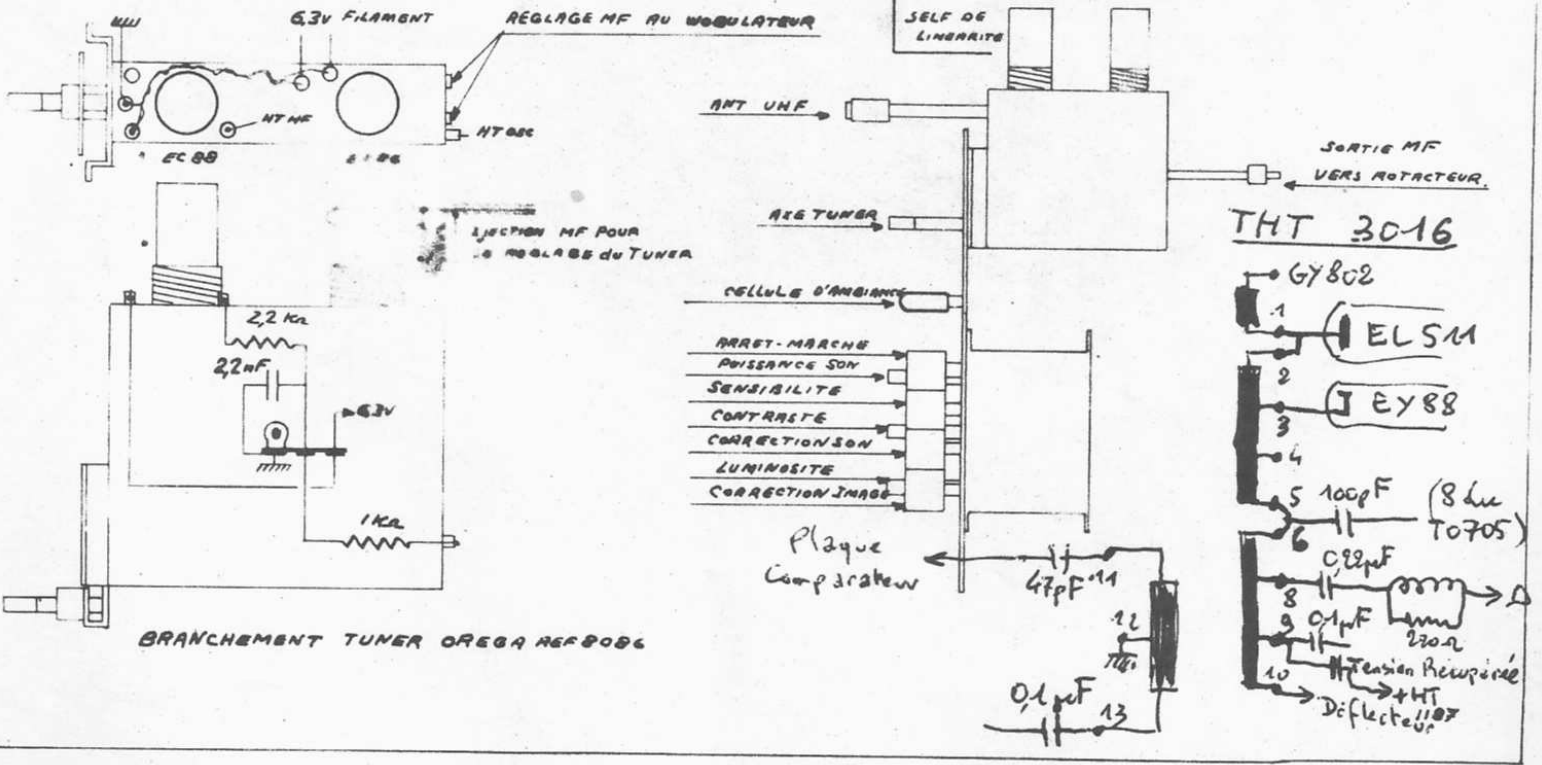 6,3V FILAMENT
REGLAGE MF AU WOBULATEUR
HT MF
HT OSC
EC 88
MF POUR
REGLAGE DU TUNER
2,2 KΩ
2,2 nF
6,3V
1 KΩ
BRANCHEMENT TUNER OREGA REF 8086
SELF DE
LINEARITE
ANT UHF
SORTIE MF
VERS ROTACTEUR
AXE TUNER
CELLULE D'AMBIANCE
ARRET-MARCHE
PUISSANCE SON
SENSIBILITE
CONTRASTE
CORRECTION SON
LUMINOSITE
CORRECTION IMAGE
Plaque
Comparateur
47pF
11
12
0,1 µF
13
THT 3016
GY802
1
EL511
2
EY88
3
4
5
100pF
(8 du
TO705)
6
0,22µF
8
220Ω
9
0,1µF
Tension Récupérée
10
+HT
Déflecteur